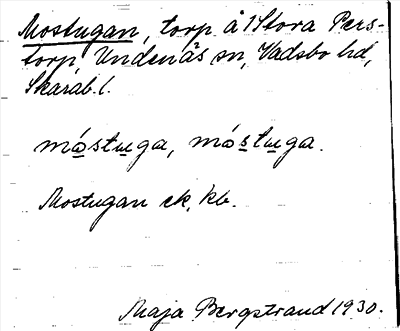 Mostugan, torp å 1 Stora Pers-
torp, Undenäs sn, Vadsbo hd,
Skarab. l.
móstuga, móstuga.
Mostugan ek, kb.
Maja Bergstrand 1930.